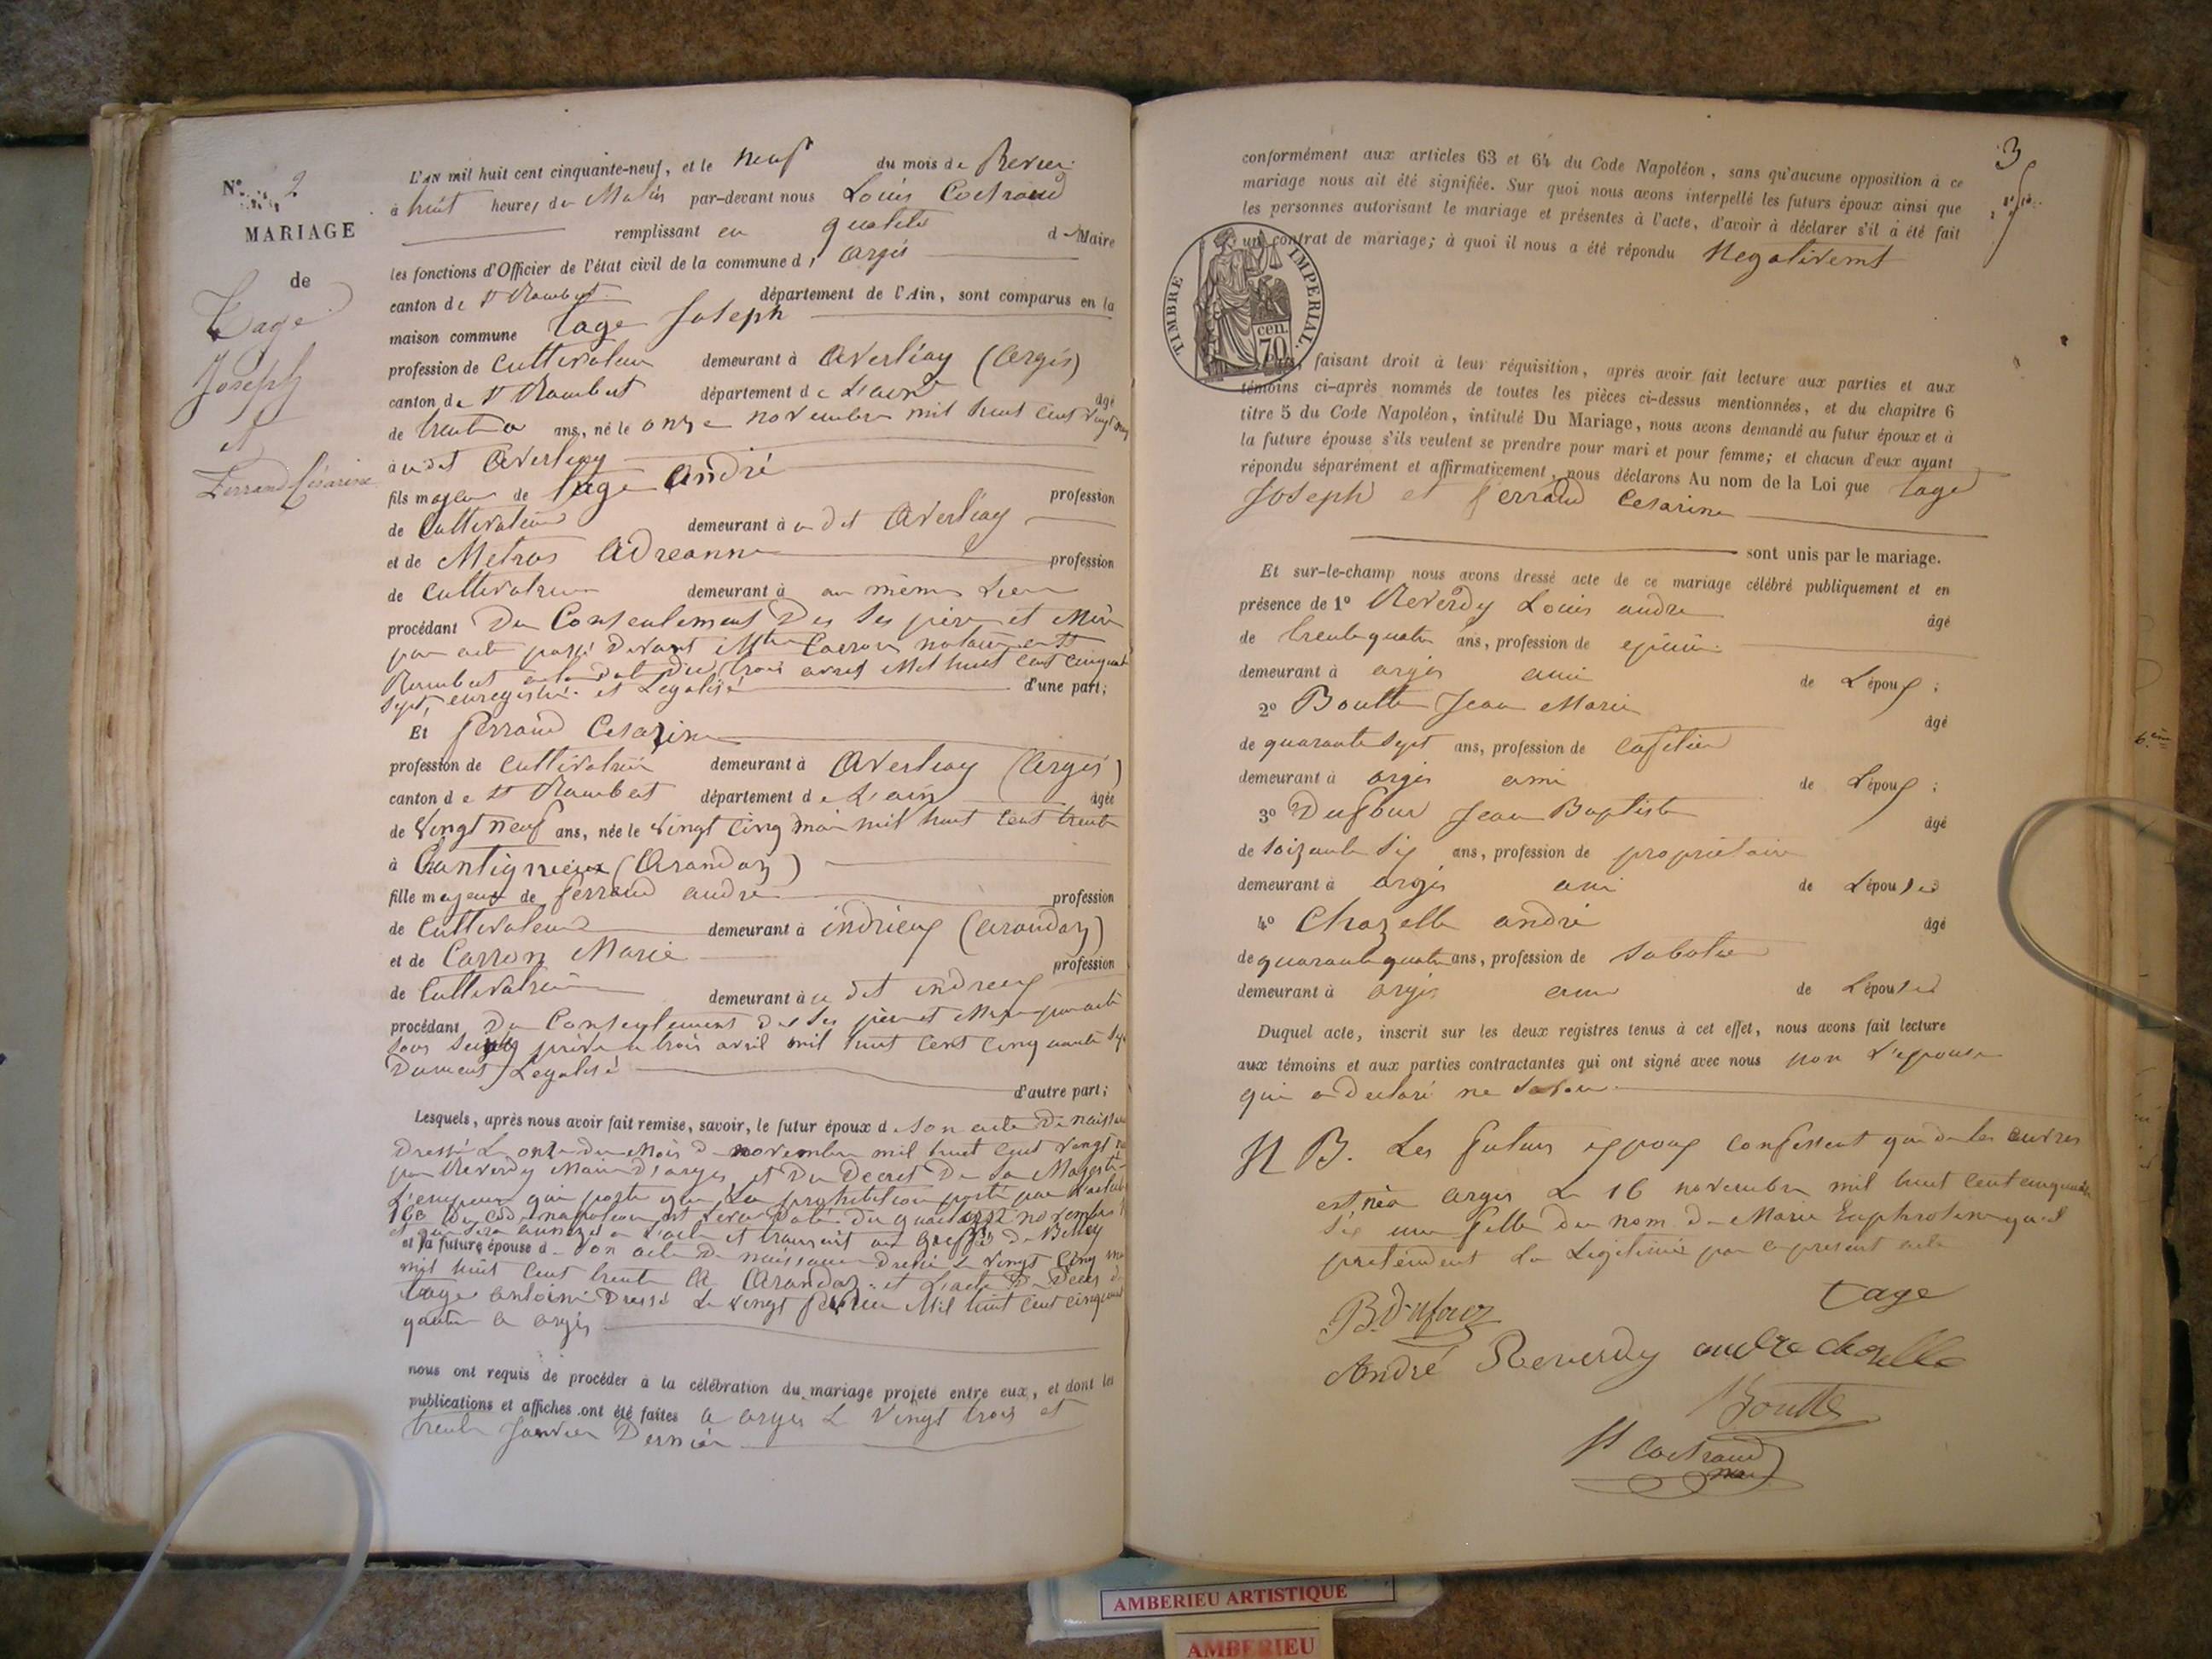 N° 2
MARIAGE
de
Tage
Joseph
et
Ferrand Césarine
L'AN mil huit cent cinquante-neuf, et le neuf du mois de fevrier
à huit heures du Matin par-devant nous Louis Cochraud
remplissant en qualité de Maire
les fonctions d'Officier de l'état civil de la commune d' argis
canton de St Rambert département de l'Ain, sont comparus en la
maison commune Tage Joseph
profession de Cultivateur demeurant à Averliay (Argis)
canton de St Rambert département de L'ain âgé
de trente ans, né le onze novembre mil huit cent vingt
à udit Averliay
fils majeur de Tage André profession
de Cultivateur demeurant à udit Averliay
et de Metras Adreanne profession
de Cultivatrice demeurant à au même Lieu
procédant Du Consentement Des Ses père et Mère
par acte passé devant Mtre Carron notaire a St
Rambert a la date du trois avril Mil huit cent cinquante
sept, enregistré et Legalisé d'une part;
Et ferrand Cesarine
profession de Cultivatrice demeurant à Averliay (Argis)
canton de St Rambert département de L'ain âgée
de Vingt neuf ans, née le Vingt Cinq mai mil huit cent trente
à Chantigneux (Arandaz)
fille majeure de ferrand andré profession
de Cultivateur demeurant à indrieux (arandaz)
et de Carron Marie profession
de Cultivatrice demeurant à udit indrieux
procédant Du Consentement des Ses père et Mère par acte
sous seing privé le trois avril mil huit cent cinquante sept
Dument Legalisé
d'autre part;
Lesquels, après nous avoir fait remise, savoir, le futur époux d e son acte de naissance
Dressé Le onze du Mois de novembre mil huit cent vingt
par Reverdy Maire d'argis, et Du Decret De Sa Magesté
L'empereur qui porte que La prohibition porté par L'article
du code napoleon est levée Daté du quatorze novembre
et qui sera annexé a L'acte et transcrit au greffe de Belley
et la future épouse d e son acte de naissance Dressé Le vingt Cinq mai
mil huit Cent trente a Arandaz et L'acte De Deces de
Tage antoine Dressé Le vingt fevrier Mil huit cent cinquante
quatre a argis
nous ont requis de procéder à la célébration du mariage projeté entre eux, et dont les
publications et affiches ont été faites a argis Le Vingt trois et
trente Janvier Dernier
3
conformément aux articles 63 et 64 du Code Napoléon, sans qu'aucune opposition à ce
mariage nous ait été signifiée. Sur quoi nous avons interpellé les futurs époux ainsi que
les personnes autorisant le mariage et présentes à l'acte, d'avoir à déclarer s'il a été fait
un contrat de mariage; à quoi il nous a été répondu Negativemt
TIMBRE IMPERIAL.
70 cen.
faisant droit à leur réquisition, après avoir fait lecture aux parties et aux
témoins ci-après nommés de toutes les pièces ci-dessus mentionnées, et du chapitre 6
titre 5 du Code Napoléon, intitulé Du Mariage, nous avons demandé au futur époux et à
la future épouse s'ils veulent se prendre pour mari et pour femme; et chacun d'eux ayant
répondu séparément et affirmativement, nous déclarons Au nom de la Loi que Tage
Joseph et ferrand Cesarine
sont unis par le mariage.
Et sur-le-champ nous avons dressé acte de ce mariage célébré publiquement et en
présence de 1° Reverdy Louis andre âgé
de trente quatre ans, profession de epicier
demeurant à argis ami de L'époux;
2° Boutte Jean Marie âgé
de quarante Sept ans, profession de Cafetier
demeurant à argis ami de L'époux;
3° Dufour Jean Baptiste âgé
de Soixante Six ans, profession de proprietaire
demeurant à argis ami de L'épouse
4° Chazelle andré âgé
de quarante quatre ans, profession de Sabotier
demeurant à argis ami de L'épouse
Duquel acte, inscrit sur les deux registres tenus à cet effet, nous avons fait lecture
aux témoins et aux parties contractantes qui ont signé avec nous non L'epouse
qui a declaré ne Savoir
N B. Les futurs epoux confessent que de les œuvres
est née a argis Le 16 novembre mil huit cent cinquante
six une fille du nom de Marie Euphrosine qu'il
pretendent La Legitimer par le present acte
B. Dufour Tage
André Reverdy andre chazelle
Boutte
Cochraud
AMBERIEU ARTISTIQUE
AMBERIEU